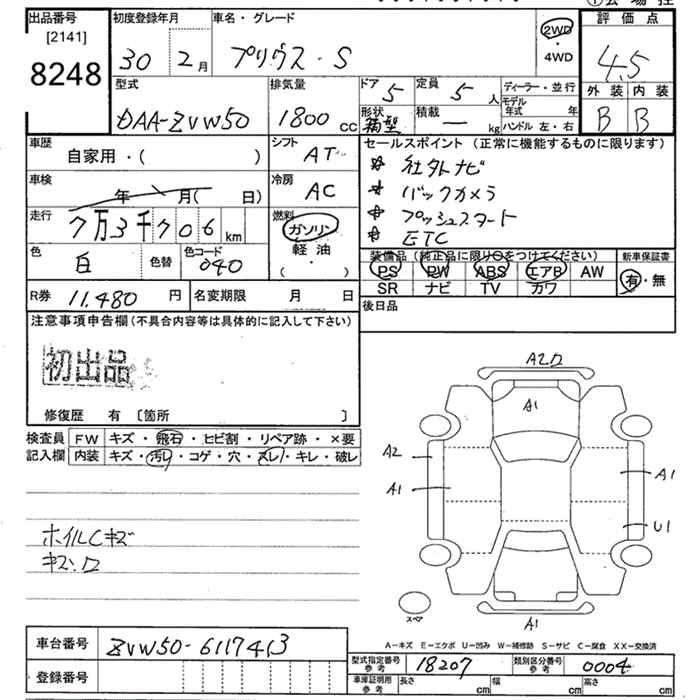 出品番号 初度登録年月 車名・グレード 評価点
[2141]
8248 30 2月 プリウス・S 2WD・4WD 4.5
型式 排気量 ドア 5 定員 5人 ディーラー・並行 外装 内装
DAA-ZVW50 1800cc 形状 箱型 積載 ー kg モデル年式 年 B B
ハンドル 左・右
車歴 自家用・( ) シフト AT セールスポイント(正常に機能するものに限ります)
社外ナビ
車検 年 月( 日) 冷房 AC バックカメラ
走行 7万3千706km 燃料 ガソリン・軽油・( ) プッシュスタート
ETC
色 白 色替 色コード 040 装備品(純正品に限り○をつけてください) 新車保証書
PS PW ABS エアB AW 有・無
SR ナビ TV カワ
R券 11,480円 名変期限 月 日 後日品
注意事項申告欄(不具合内容等は具体的に記入して下さい)
初出品
修復歴 有 [箇所 ]
検査員記入欄 FW キズ・飛石・ヒビ割・リペア跡・×要
内装 キズ・汚レ・コゲ・穴・スレ・キレ・破レ
A2
A1
A2
A1
A1
U1
ホイルCキズ
キズ.ロ
スペア
A1
車台番号 ZVW50-6117413
A-キズ E-エクボ U-凹み W-補修跡 S-サビ C-腐食 XX-交換済
型式指定番号 参考 18207 類別区分番号 参考 0004
登録番号 車庫証明用 参考 長さ cm 幅 cm 高さ cm